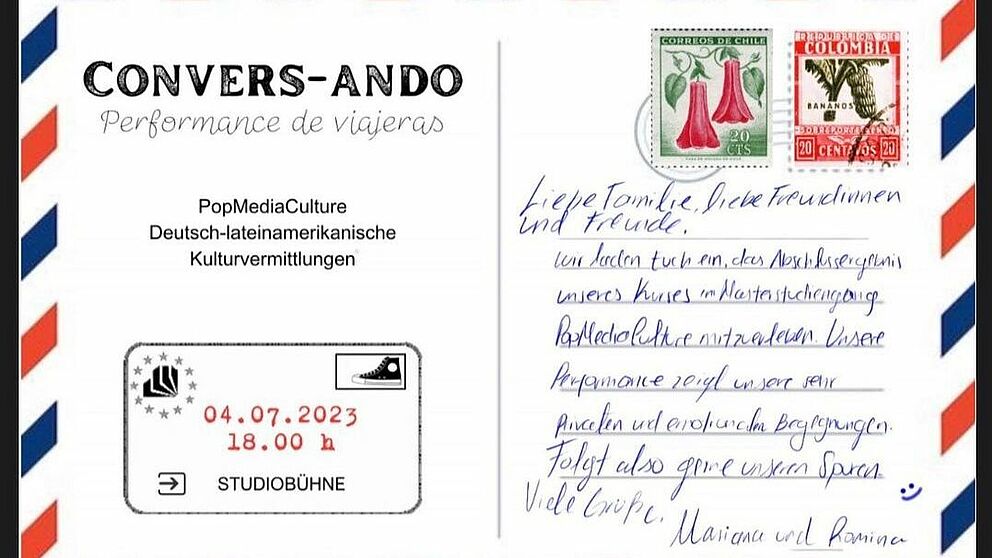 CONVERS-ANDO
Performance de viajeras
PopMediaCulture
Deutsch-lateinamerikanische
Kulturvermittlungen
04.07.2023
18.00 h
STUDIOBÜHNE
CORREOS DE CHILE
20
CTS
REPUBLICA DE
COLOMBIA
BANANOS
SOBREPORTE AEREO
20 CENTAVOS 20
Liebe Familie, liebe Freundinnen
und Freunde,
wir laden Euch ein, das Abschlussergebnis
unseres Kurses im Masterstudiengang
PopMediaCulture mitzuerleben. Unsere
Performance zeigt unsere sehr
privaten und emotionalen Begegnungen.
Folgt also gerne unseren Spuren.
Viele Grüße,
Mariana und Romina